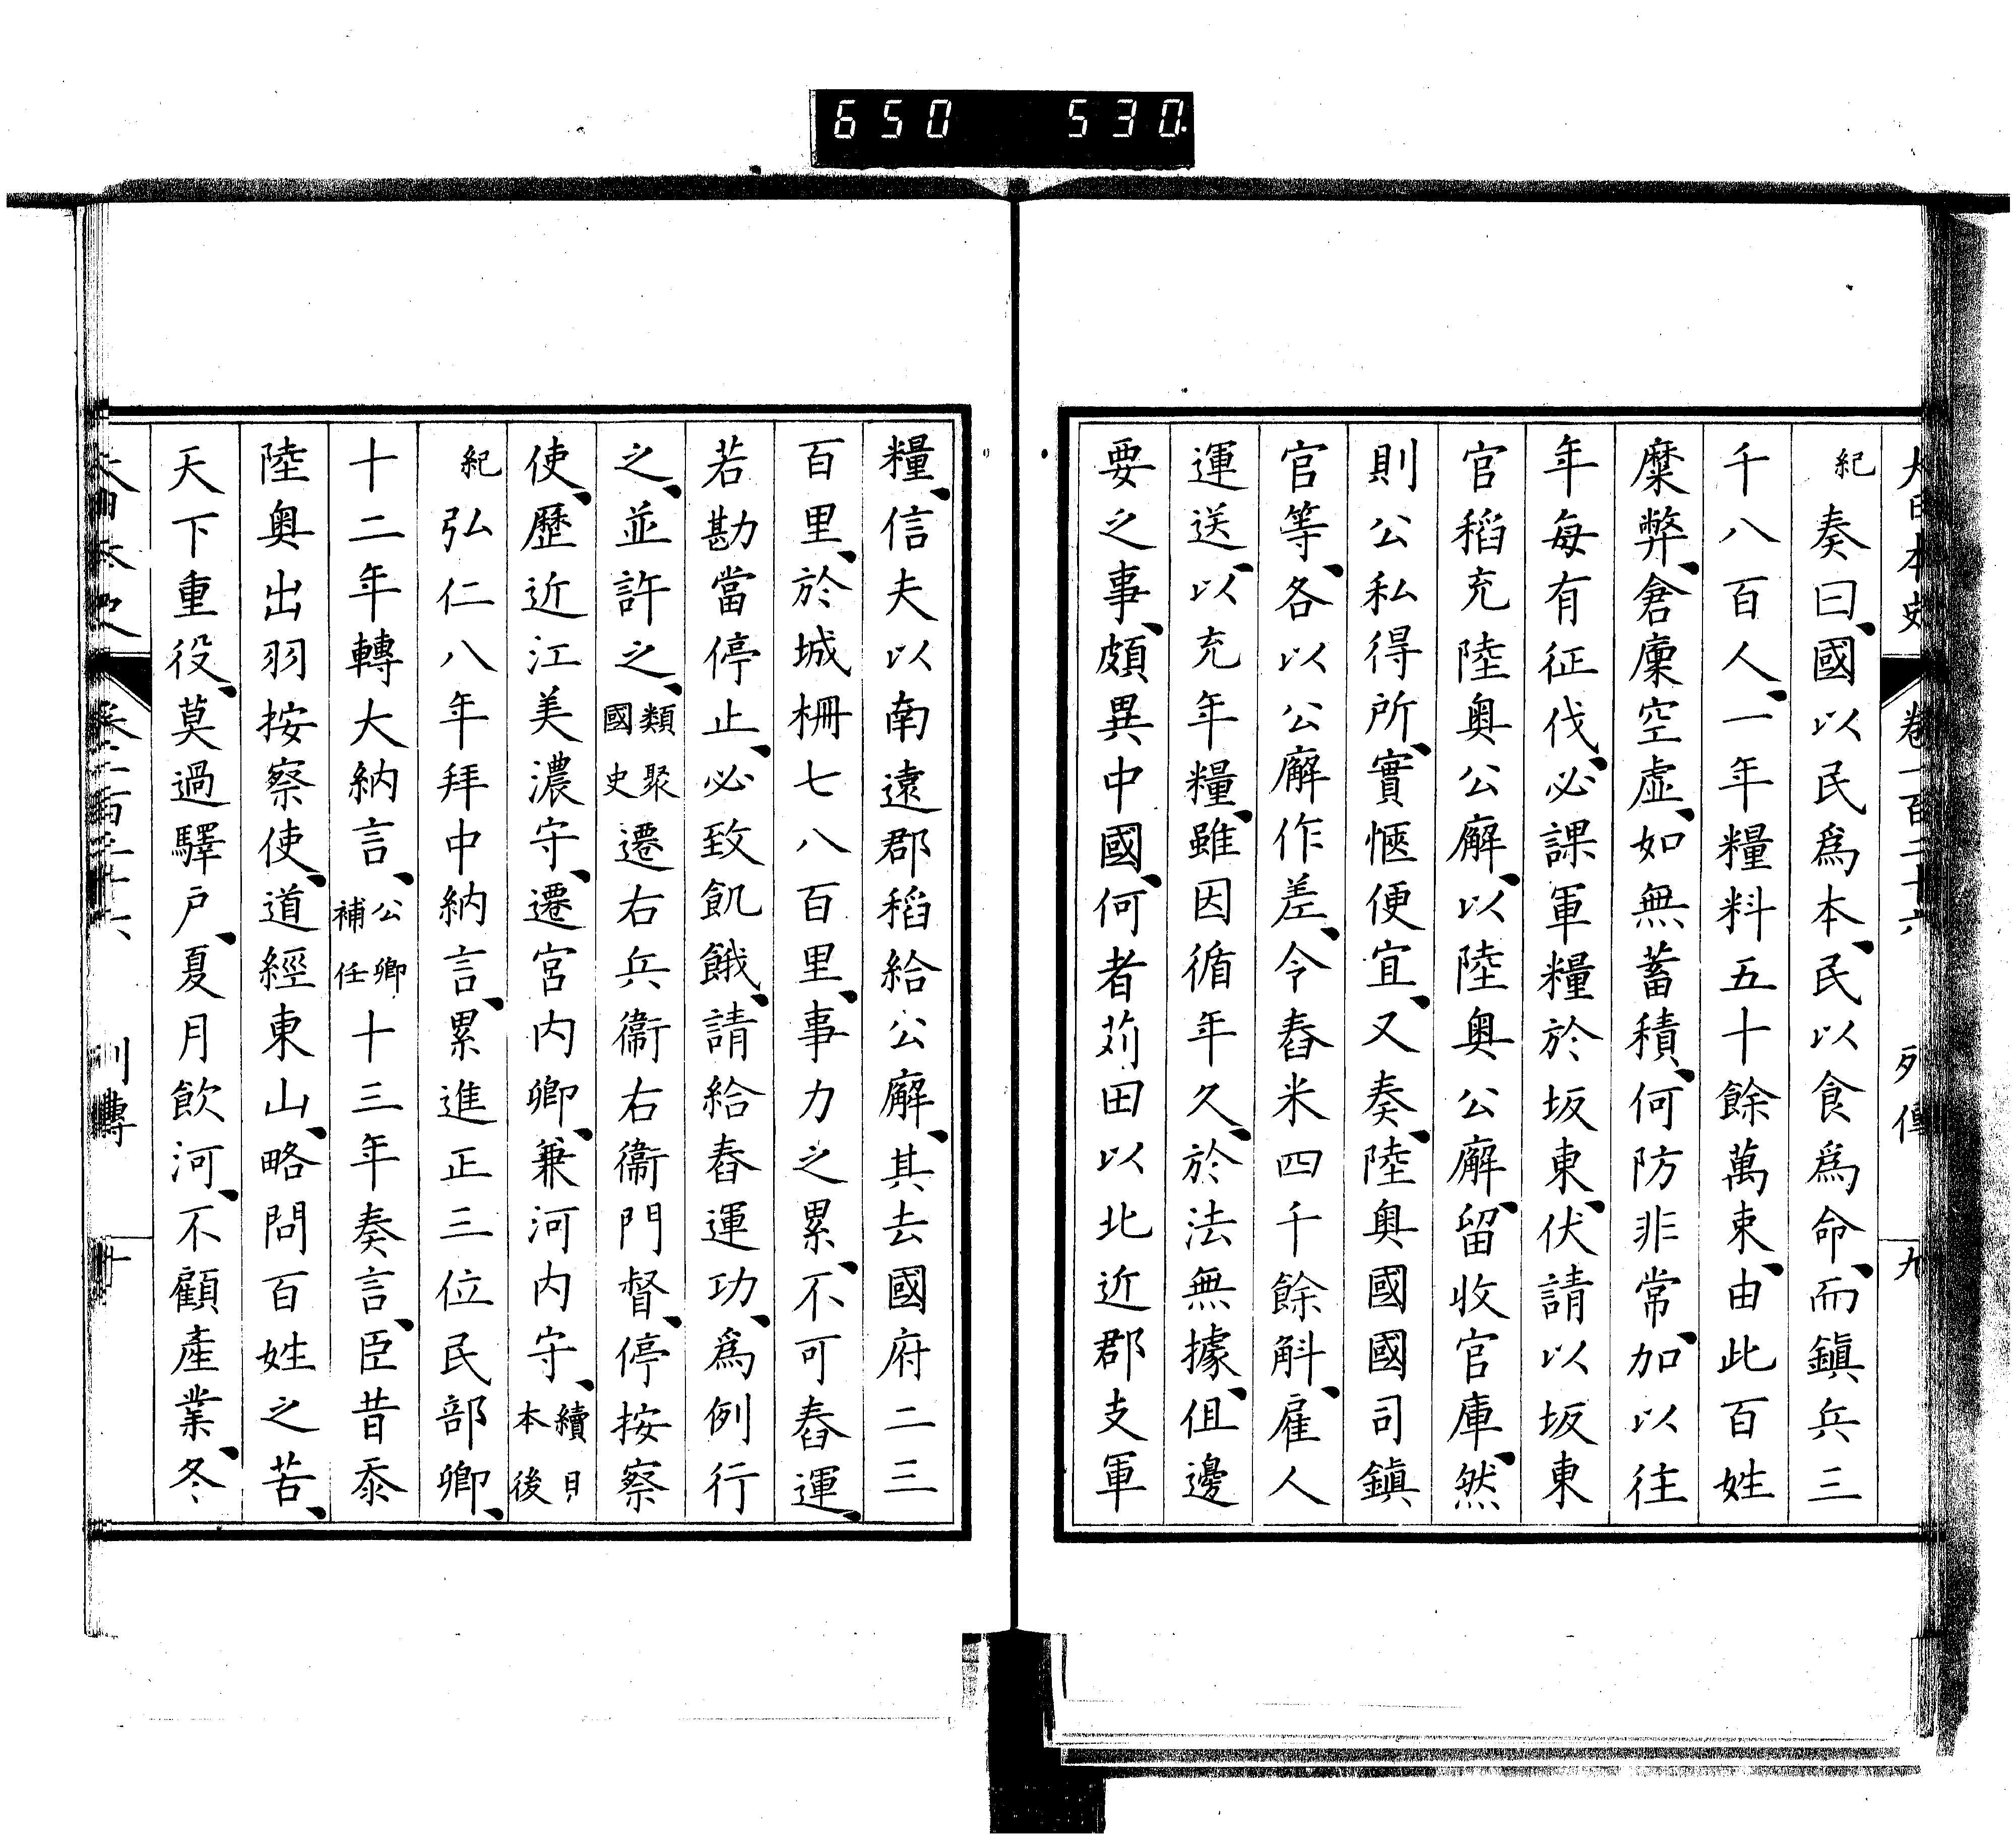 650 530
大日本史 卷一百二十六 列傳 九
紀奏曰、國以民爲本、民以食爲命、而鎭兵三
千八百人、一年糧料五十餘萬束、由此百姓
糜弊、倉廩空虛、如無蓄積、何防非常、加以往
年每有征伐、必課軍糧於坂東、伏請以坂東
官稻充陸奧公廨、以陸奧公廨、留收官庫、然
則公私得所、實愜便宜、又奏、陸奧國國司鎭
官等、各以公廨作差、令舂米四千餘斛、雇人
運送、以充年糧、雖因循年久、於法無據、但邊
要之事、頗異中國、何者苅田以北近郡支軍
糧、信夫以南遠郡稻給公廨、其去國府二三
百里、於城柵七八百里、事力之累、不可舂運、
若勘當停止、必致飢餓、請給舂運功、爲例行
之、並許之、類聚國史遷右兵衞右衞門督、停按察
使、歷近江美濃守、遷宮內卿、兼河內守、續日本後
紀弘仁八年拜中納言、累進正三位民部卿、
十二年轉大納言、公卿補任十三年奏言、臣昔忝
陸奧出羽按察使、道經東山、略問百姓之苦、
天下重役、莫過驛戶、夏月飮河、不顧產業、冬
列傳 十